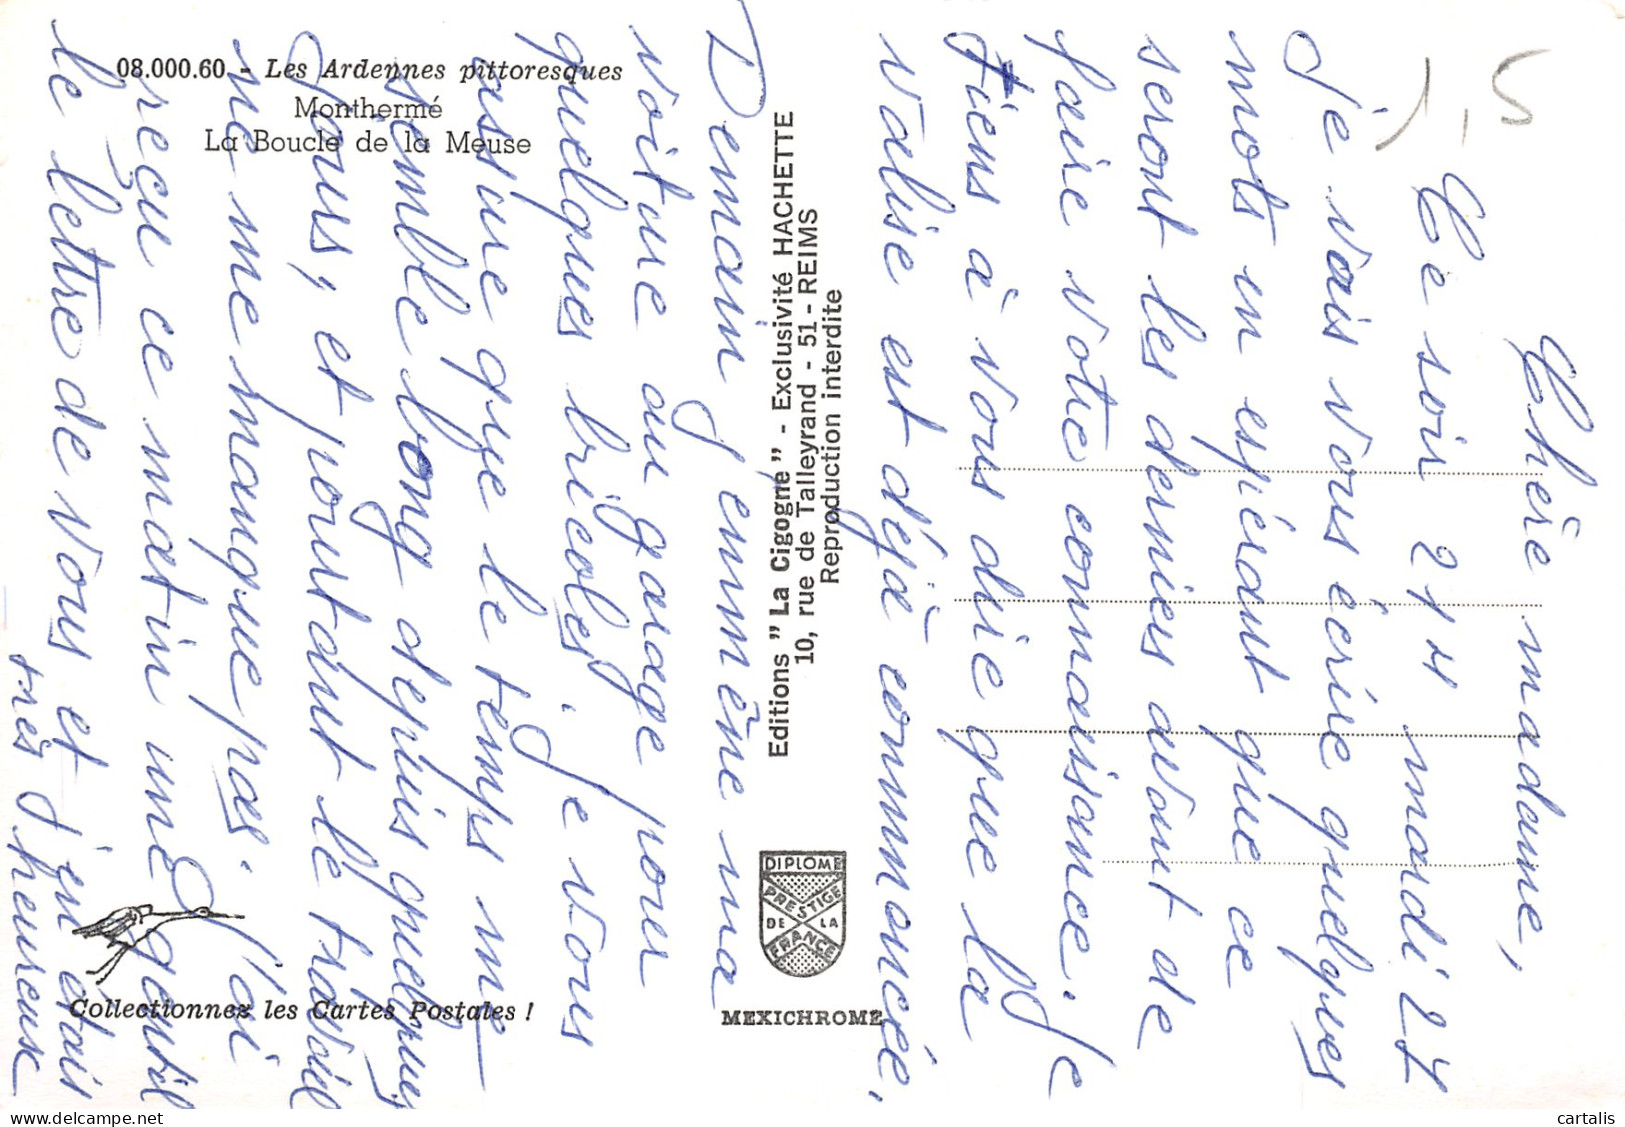 08.000.60 - Les Ardennes pittoresques
Monthermé
La Boucle de la Meuse
1,5
Chère madame,
Ce soir 21H mardi 27
je vais vous écrire quelques
mots en espérant que ce
seront les derniers avant de
faire votre connaissance. Je
tiens à vous dire que la
valise est déjà commencée.
Demain j'emmène ma
voiture au garage pour
quelques bricoles. Je vous
assure que le temps me
semble long depuis quelques
jours, et pourtant le travail
ne me manque pas. J'ai
reçu ce matin une gentille
lettre de vous et j'en étais
très heureuse
Editions "La Cigogne" - Exclusivité HACHETTE
10, rue de Talleyrand - 51 - REIMS
Reproduction interdite
DIPLOME
PRESTIGE
DE LA
FRANCE
MEXICHROME
Collectionnez les Cartes Postales !
cartalis